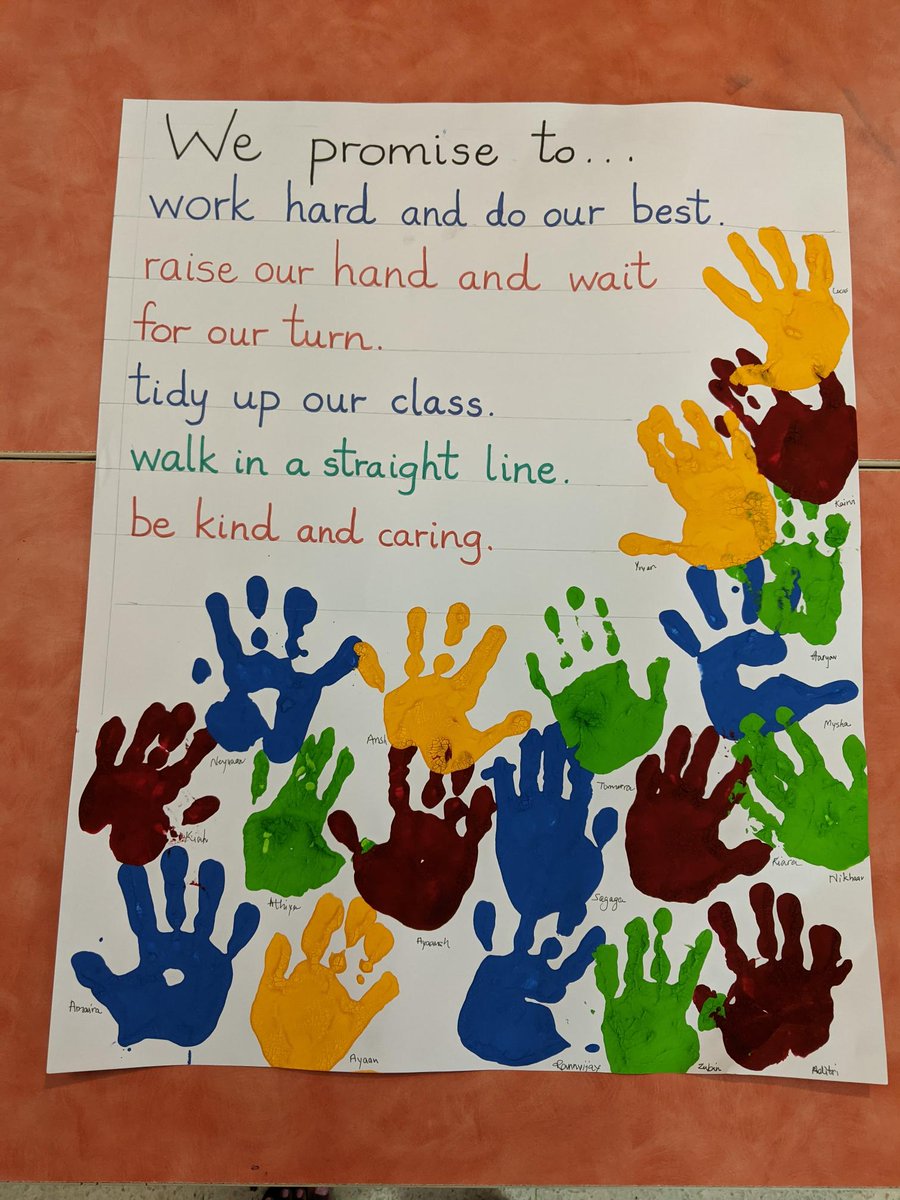 We promise to...
work hard and do our best.
raise our hand and wait
for our turn.
tidy up our class.
walk in a straight line.
be kind and caring.
Lucas
Kairvi
Yuvan
Aaryav
Mysha
Ansh
Kiah
Kiara
Nikhaar
Athiya
Ayaansh
Sagaga
Amaira
Ayaan
Zubin
Aditri